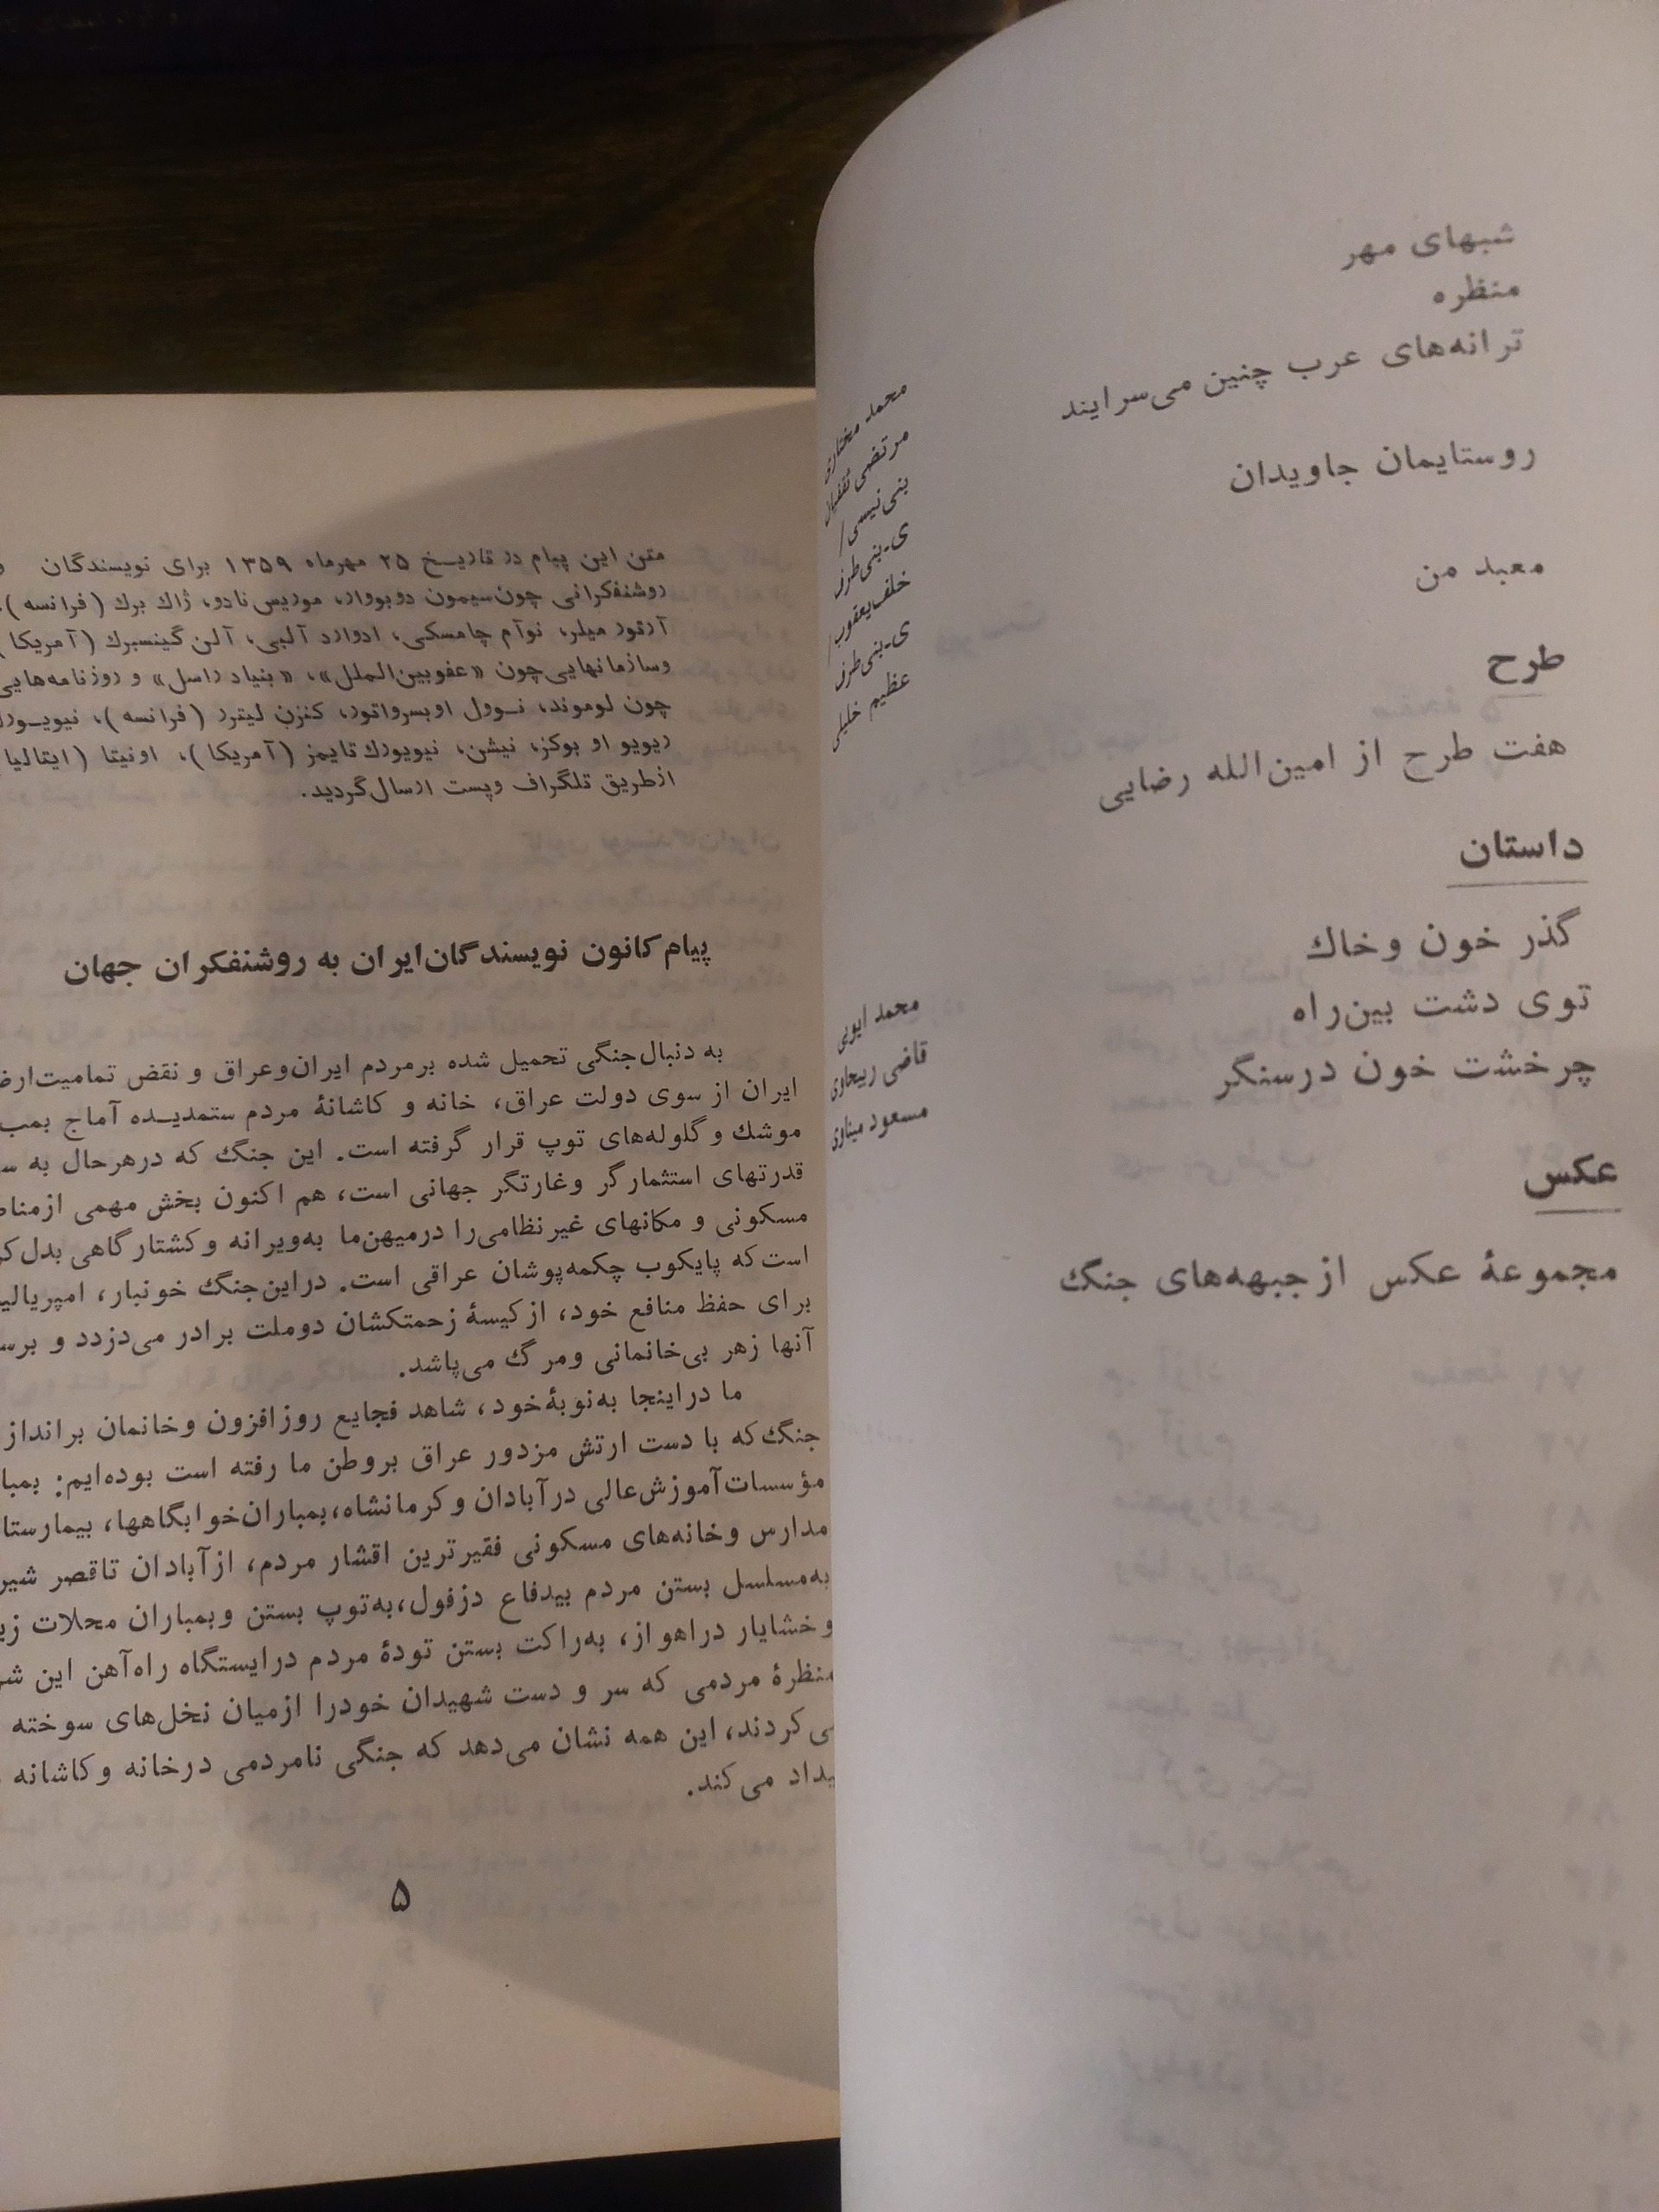 شبهای مهر
منظره
ترانه‌های عرب چنین می‌سرایند
روستایمان جاویدان
معبد من
طرح
هفت طرح از امین‌الله رضایی
داستان
گذر خون وخاك
توی دشت بین‌راه
چرخشت خون درسنگر
عکس
مجموعهٔ عکس ازجبهه‌های جنگ
محمد مختاری
مرتضی ثقفیان
بنی‌نیسی/
ی-بنی‌طرف
خلف‌یعقوب/
ی-بنی‌طرف
عظیم خلیلی
محمد ایوبی
قاضی ربیحاوی
مسعود میناوی
متن این پیام در تاریـخ ۲۵ مهرماه ۱۳۵۹ برای نویسندگان و
روشنفکرانی چون‌سیمون دوبووار، موریس‌نادو، ژاك برك (فرانسه)،
آرتور میلر، نوآم چامسکی، ادوارد آلبی، آلن گینسبرك (آمریکا)
وسازمانهایی‌چون «عفوبین‌الملل»، «بنیاد راسل» و روزنامه‌هایی
چون لوموند، نـوول اوبسرواتور، کنزن لیترر (فرانسه)، نیویـورك
ریویو او بوکز، نیشن، نیویورك تایمز (آمریکا)، اونیتا (ایتالیا
ازطریق تلگراف وپست ارسال‌گردید.
پیام کانون نویسندگان‌ایران به روشنفکران جهان
به دنبال‌جنگی تحمیل شده برمردم ایران‌وعراق و نقض تمامیت‌ارضی
ایران از سوی دولت عراق، خانه و کاشانهٔ مردم ستمدیـده آماج بمب
موشك و گلوله‌های توپ قرار گرفته است. این جنگ که درهرحال به
قدرتهای استثمارگر وغارتگر جهانی است، هم اکنون بخش مهمی
مسکونی و مکانهای غیرنظامی‌را درمیهن‌ما به‌ویرانه و کشتارگاهی بدل
است‌که پایکوب چکمه‌پوشان عراقی است. دراین‌جنگ خونبار،
برای حفظ منافع خود، ازکیسهٔ زحمتکشان دوملت برادر می‌دزدد و
آنها زهر بی‌خانمانی ومرگ می‌پاشد.
ما دراینجا به‌نوبهٔ‌خود، شاهد فجایع روزافزون وخانمان برانداز
جنگ‌که با دست ارتش مزدور عراق بروطن ما رفته است بوده‌ایم:
مؤسسات‌آموزش‌عالی درآبادان وکرمانشاه،بمباران‌خوابگاهها،
مدارس وخانه‌های مسکونی فقیرترین اقشار مردم، ازآبادان تاقصر
به‌مسلسل بستن مردم بیدفاع دزفول،به‌توپ بستن وبمباران محلات
وخشایار دراهواز، به‌راکت بستن تودهٔ مردم درایستگاه راه‌آهن این
منظرهٔ مردمی که سر و دست شهیدان خودرا ازمیان نخل‌های سوخته
می‌کردند، این همه نشان می‌دهد که جنگی نامردمی درخانه وکاشانه
بیداد می‌کند.
۵